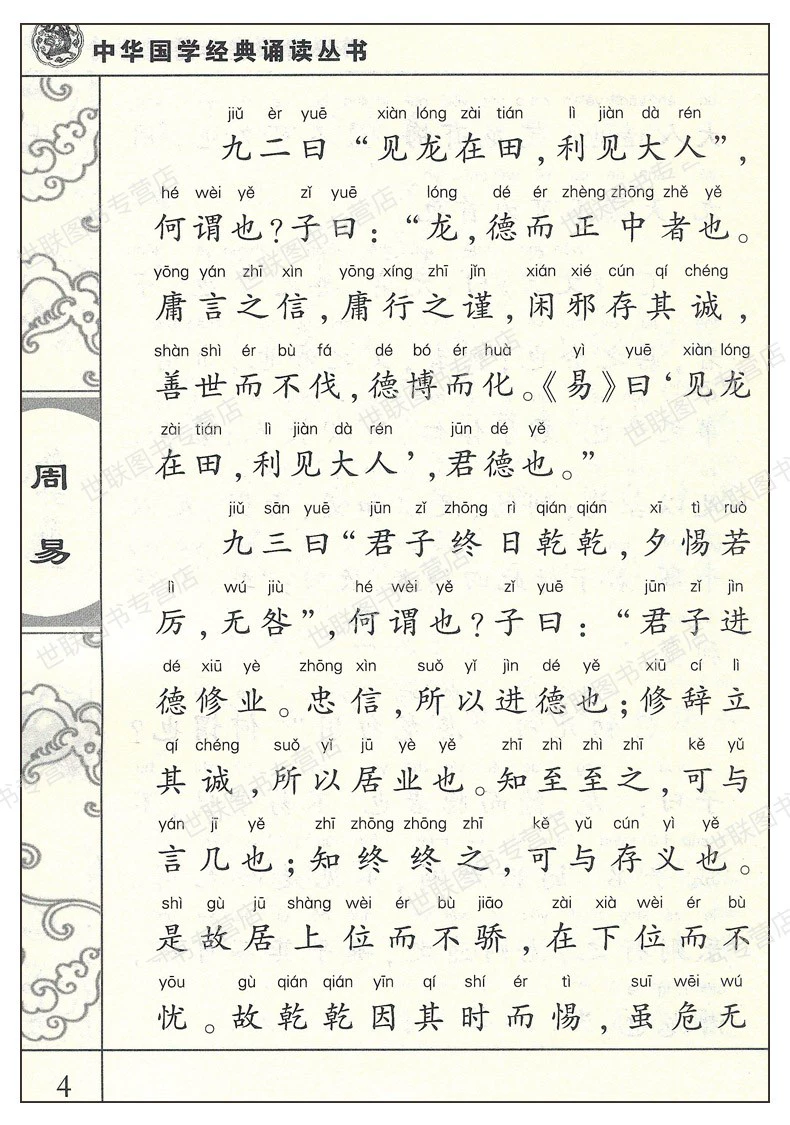 中华国学经典诵读丛书
jiǔ èr yuē xiàn lóng zài tián lì jiàn dà rén
九二曰“见龙在田，利见大人”，
hé wèi yě zǐ yuē lóng dé ér zhèng zhōng zhě yě
何谓也？子曰：“龙，德而正中者也。
yōng yán zhī xìn yōng xíng zhī jǐn xián xié cún qí chéng
庸言之信，庸行之谨，闲邪存其诚，
shàn shì ér bù fá dé bó ér huà yì yuē xiàn lóng
善世而不伐，德博而化。《易》曰‘见龙
zài tián lì jiàn dà rén jūn dé yě
在田，利见大人’，君德也。”
jiǔ sān yuē jūn zǐ zhōng rì qián qián xī tì ruò
九三曰“君子终日乾乾，夕惕若
lì wú jiù hé wèi yě zǐ yuē jūn zǐ jìn
厉，无咎”，何谓也？子曰：“君子进
dé xiū yè zhōng xìn suǒ yǐ jìn dé yě xiū cí lì
德修业。忠信，所以进德也；修辞立
qí chéng suǒ yǐ jū yè yě zhī zhì zhì zhī kě yǔ
其诚，所以居业也。知至至之，可与
yán jī yě zhī zhōng zhōng zhī kě yǔ cún yì yě
言几也；知终终之，可与存义也。
shì gù jū shàng wèi ér bù jiāo zài xià wèi ér bù
是故居上位而不骄，在下位而不
yōu gù qián qián yīn qí shí ér tì suī wēi wú
忧。故乾乾因其时而惕，虽危无
周易
4
世联图书专营店